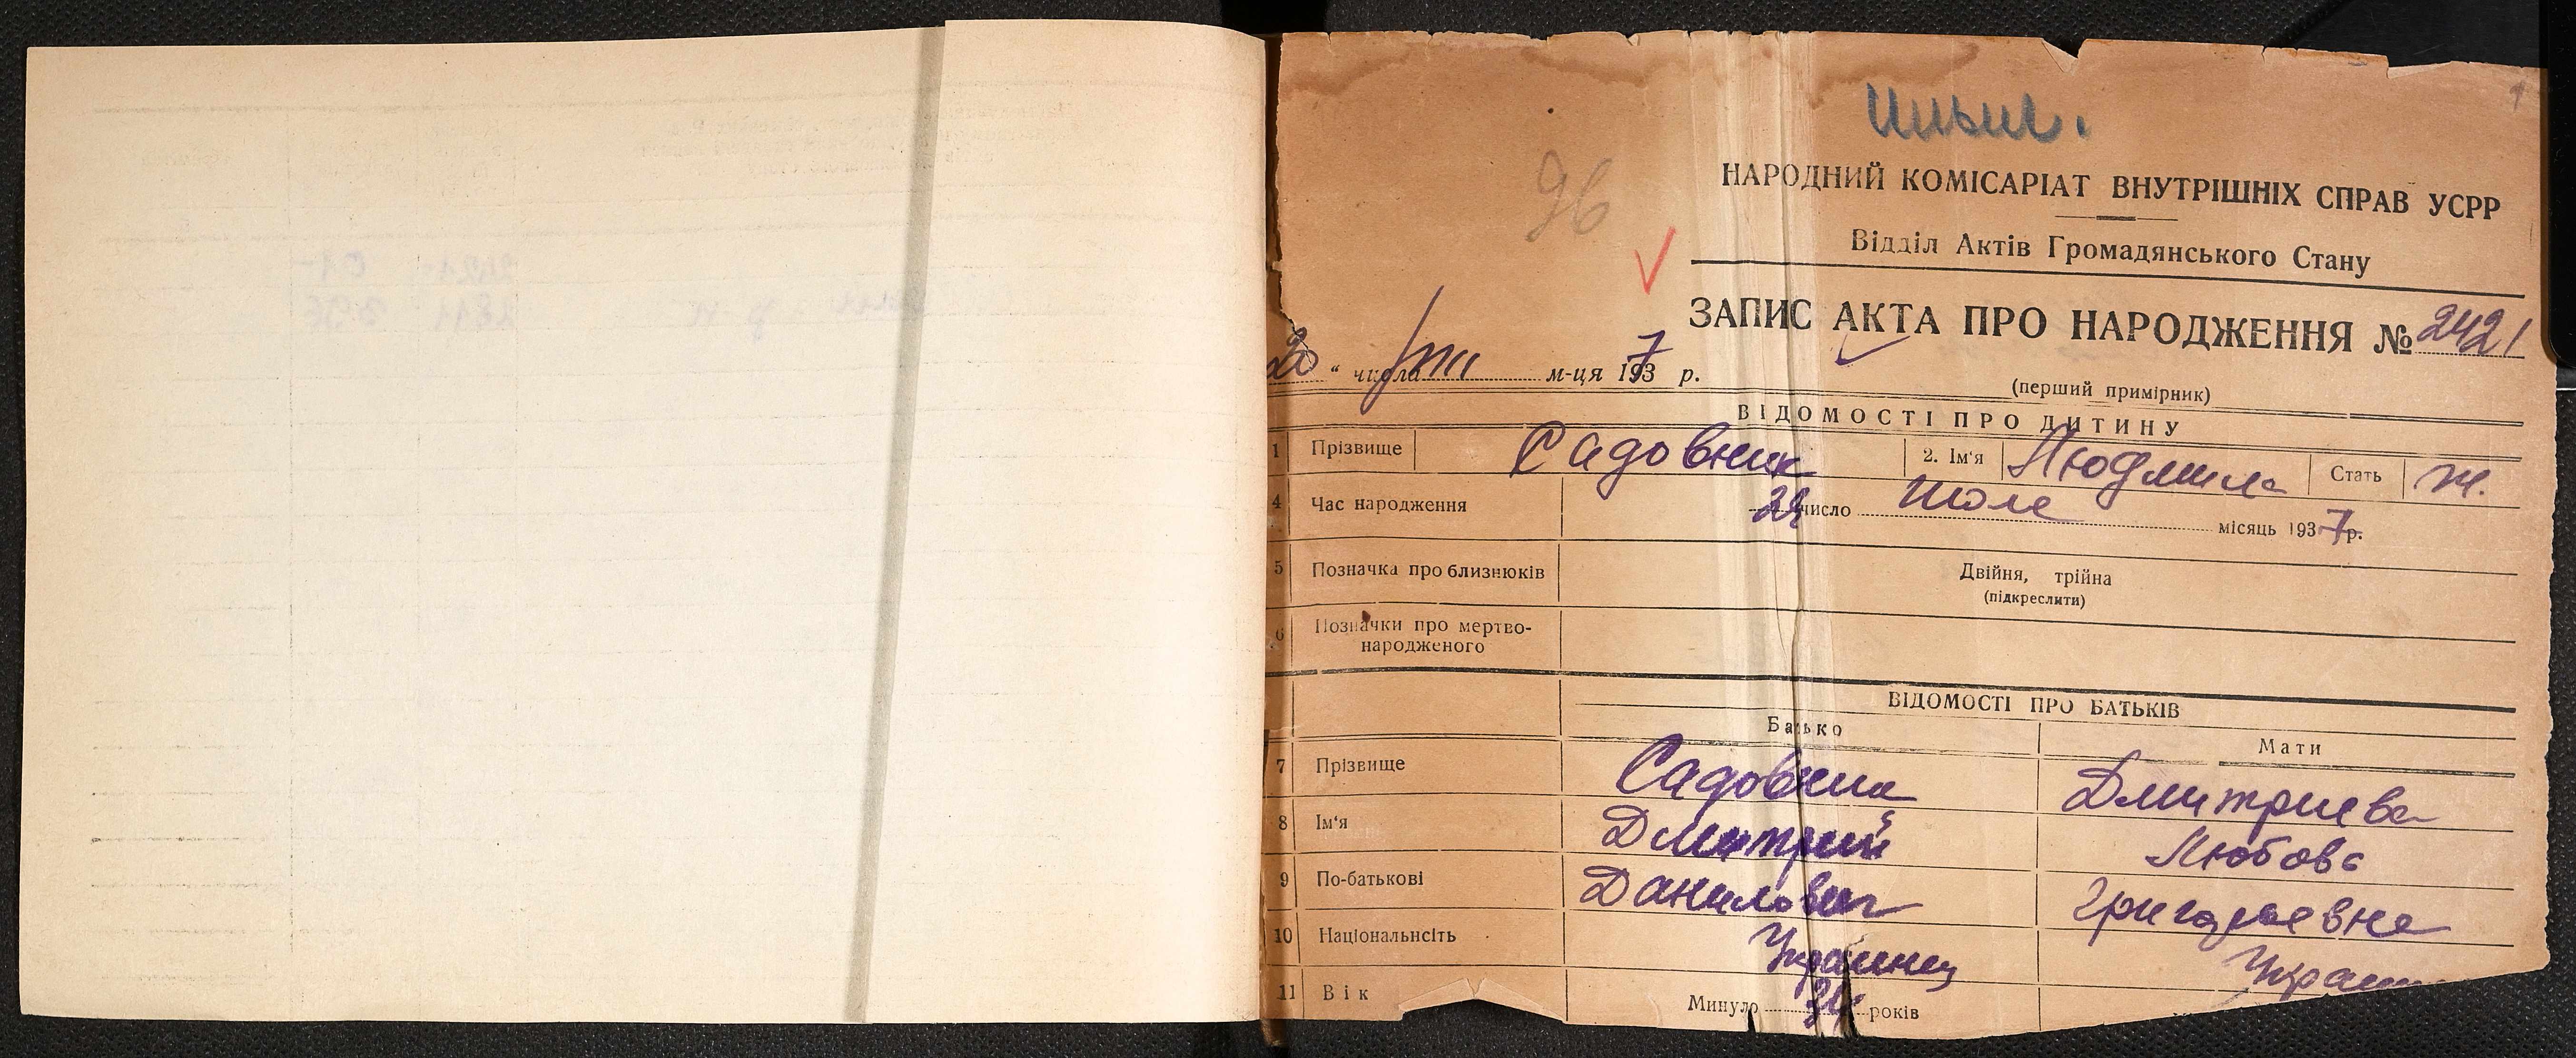 96
НАРОДНИЙ КОМІСАРІАТ ВНУТРІШНІХ СПРАВ УСРР
Відділ Актів Громадянського Стану
ЗАПИС АКТА ПРО НАРОДЖЕННЯ № 2421
20 " числа /VIII м-ця 1937 р.
(перший примірник)
ВІДОМОСТІ ПРО ДИТИНУ
1 Прізвище Садовник 2. Ім'я Людмила Стать ж.
4 Час народження число Июле місяць 1937 р.
5 Позначка про близнюків Двійня, трійна
(підкреслити)
6 Позначки про мертво-
народженого
ВІДОМОСТІ ПРО БАТЬКІВ
Батько Мати
7 Прізвище Садовник Дмитриева
8 Ім'я Дмитрий Любовь
9 По-батькові Данилович Григорьевна
10 Національнсіть Украинец
11 Вік Минуло 34 років